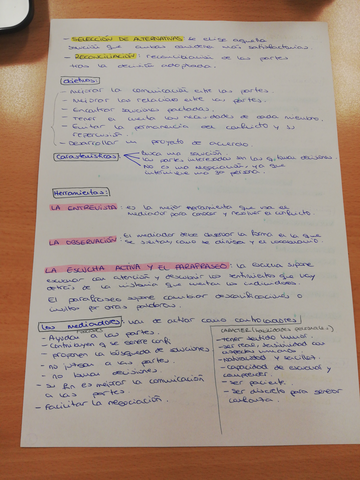 - SELECCIÓN DE ALTERNATIVAS: se elige aquella
solución que ambos considera más satisfactoria.
- RECONCILIACIÓN: reconciliación de las partes
tras la decisión adoptada.
Objetivos:
- Mejorar la comunicación entre las partes.
- Mejorar las relaciones entre las partes.
- Encontrar soluciones pactadas.
- Tener en cuenta las necesidades de cada miembro.
- Evitar la permanencia del conflicto y su
repercusión.
- Desarrollar un proyecto de acuerdo
Características
Busca una solución
Las partes interesadas son las q. toman decisiones
No es una negociación ya que
interviene una 3ª persona.
Herramientas:
LA ENTREVISTA: es la mejor herramienta que usa el
mediador para conocer y resolver el conflicto.
LA OBSERVACIÓN: el mediador debe observar la forma en la que
se sientan, como se dirigen y el vocabulario
LA ESCUCHA ACTIVA Y EL PARAFRASEO: la escucha supone
escuchar con atención y descubrir los sentimientos que hay
detrás de la historia que cuentan los individuos.
El parafraseo supone cambiar descalificaciones o
insultos por otras palabras.
Los mediadores: han de actuar como controladores
- Ayudan a las partes.
- Contribuyen q se genere conf.
- proponen la búsqueda de soluciones
- no juzgan a las partes.
- no toman decisiones
- su fin es mejorar la comunicación
a las partes
- Facilitar la negociación.
CARACTERÍSTICAS
- Tener sentido humor
- ser real, sensibilidad con
aspectos humanos.
- capacidad de escuchar y
comprender.
- ser paciente.
- ser discreto para generar
confianza.